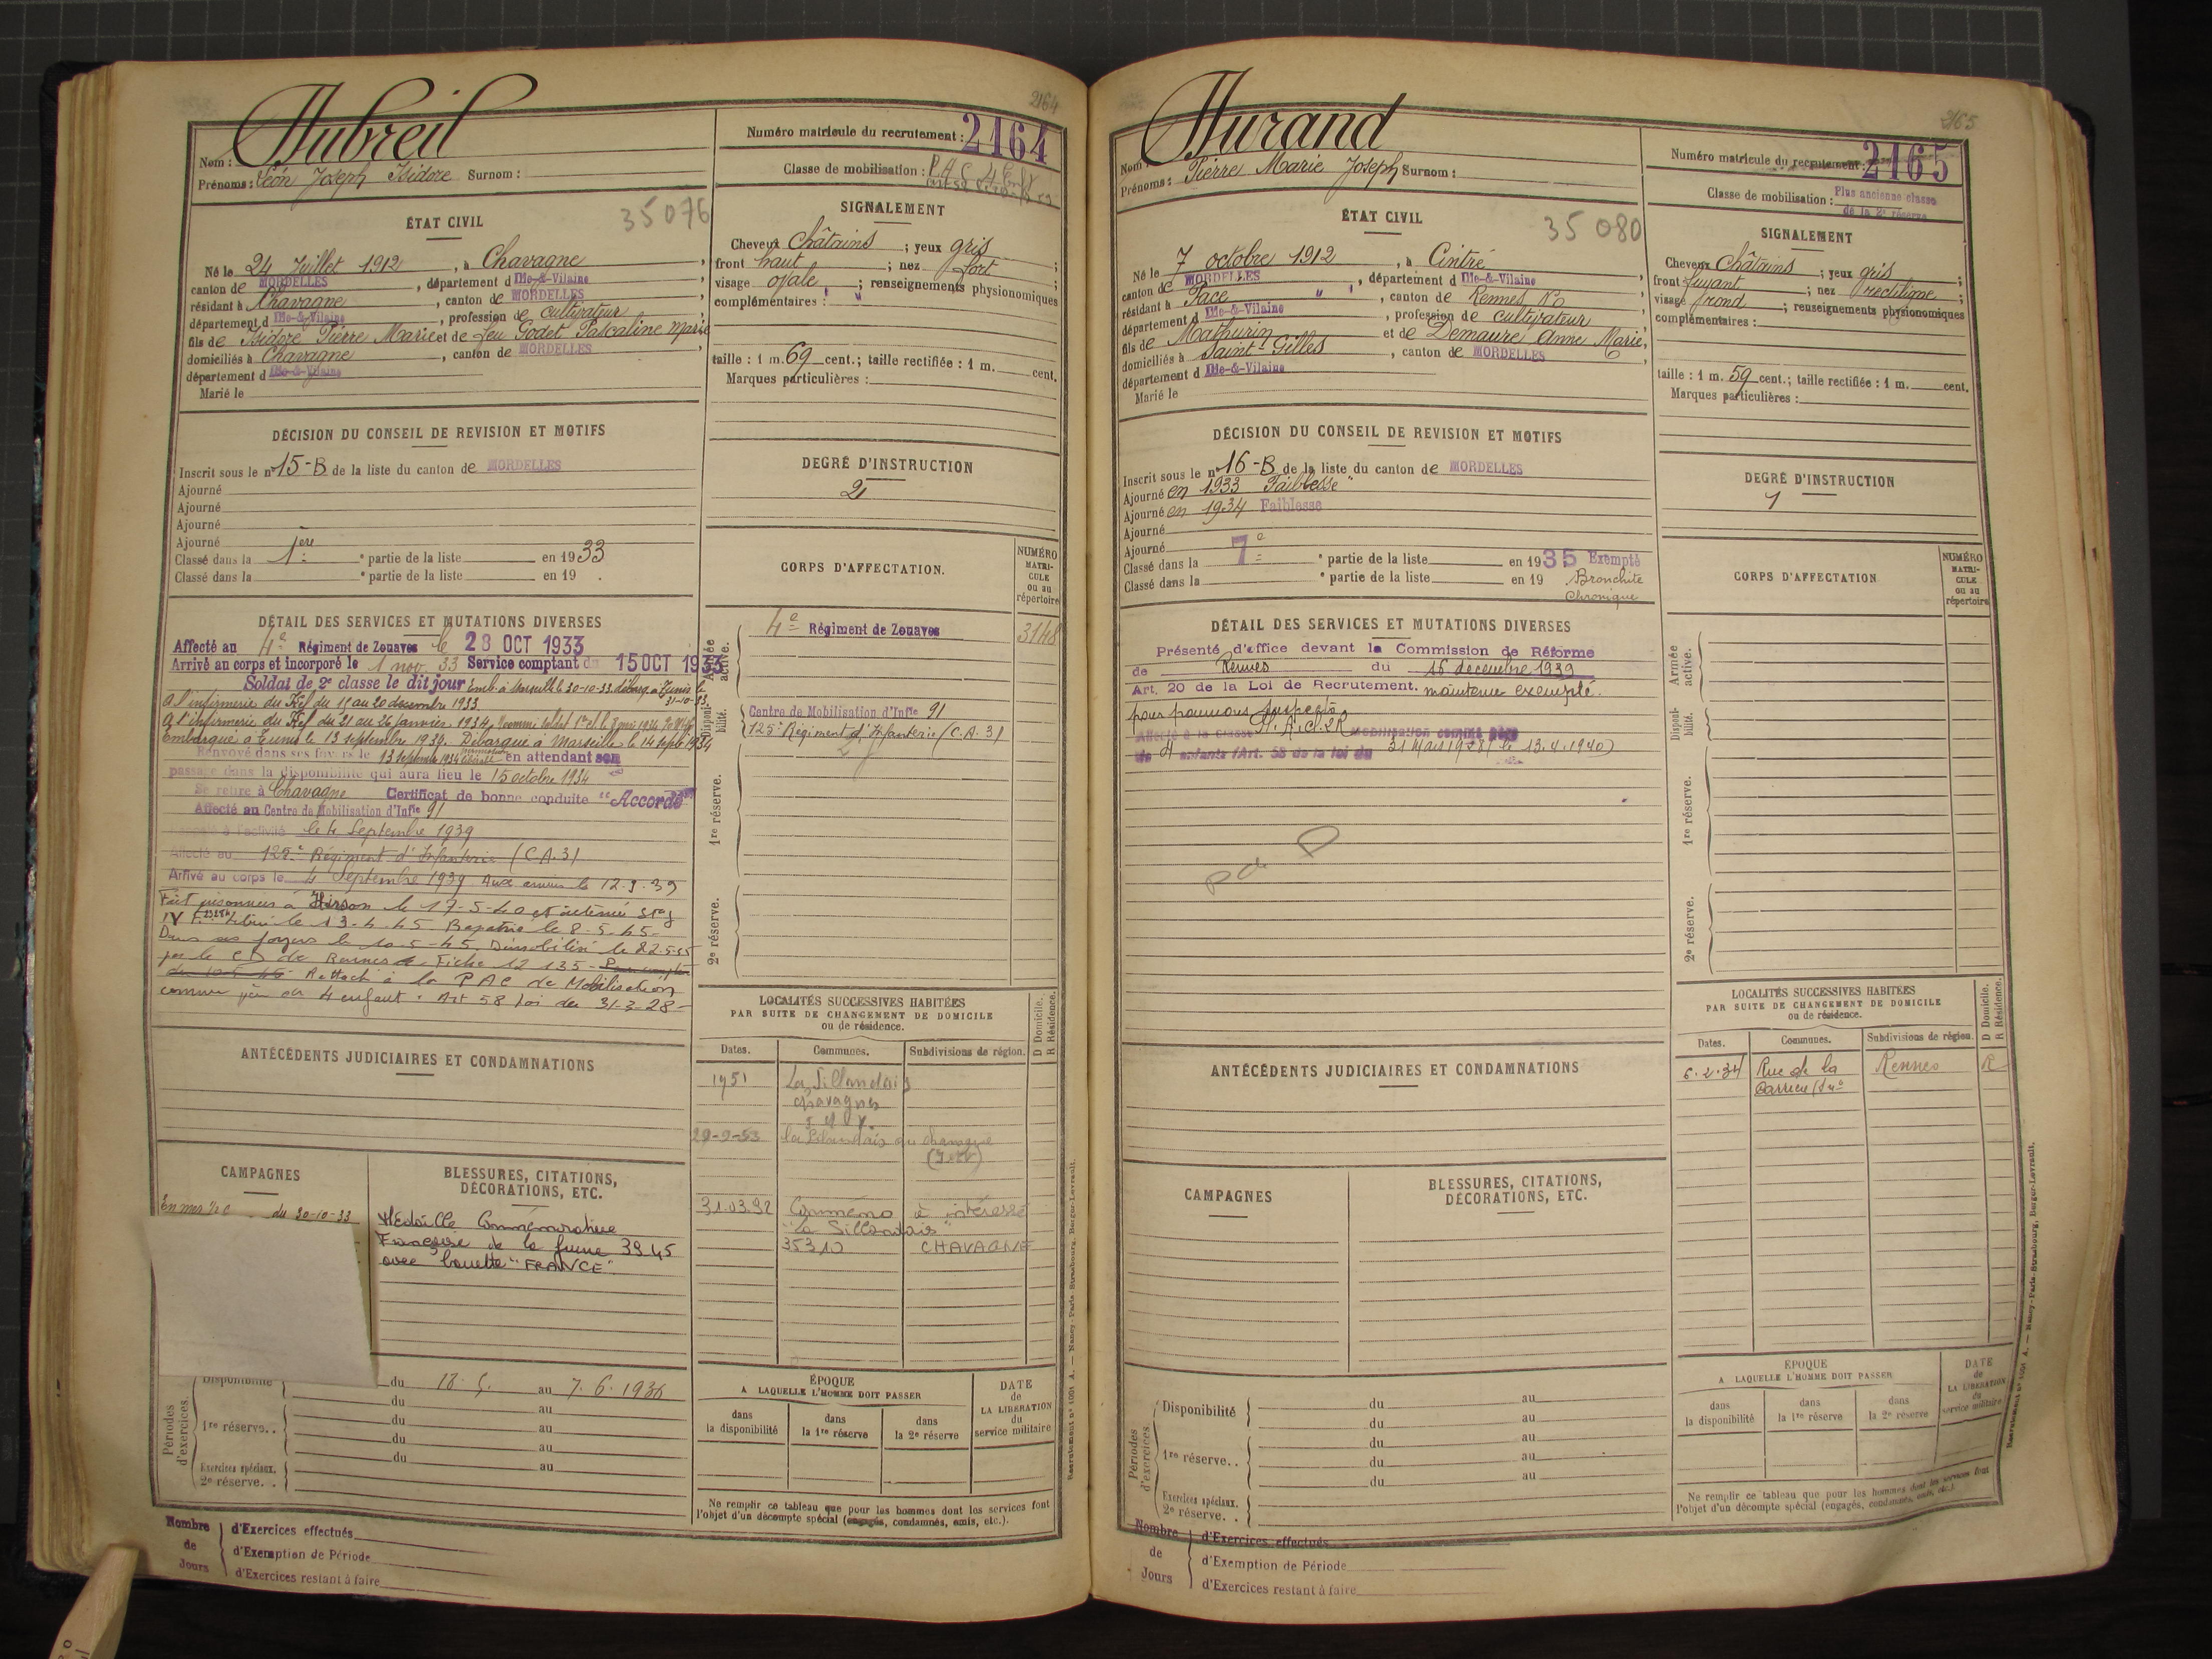 2164
Dubreil
Nom :
Prénoms : Léon Joseph Isidore Surnom :
Numéro matricule du recrutement : 2164
Classe de mobilisation : P.A.C.
ÉTAT CIVIL
35076
Né le 24 Juillet 1912, à Chavagne,
canton de MORDELLES, département d Ille-&-Vilaine
résidant à Chavagne, canton de MORDELLES,
département d Ille-&-Vilaine, profession de cultivateur,
fils de Isidore Pierre Marie et de feu Godet Pascaline Marie
domiciliés à Chavagne, canton de MORDELLES,
département d Ille-&-Vilaine
Marié le
SIGNALEMENT
Cheveux Châtains ; yeux gris ;
front haut ; nez fort ;
visage ovale ; renseignements physionomiques
complémentaires :
taille : 1 m. 69 cent.; taille rectifiée : 1 m. cent.
Marques particulières :
DÉCISION DU CONSEIL DE REVISION ET MOTIFS
Inscrit sous le n° 15-B de la liste du canton de MORDELLES
Ajourné
Ajourné
Ajourné
Ajourné
Classé dans la 1ère partie de la liste en 1933
Classé dans la partie de la liste en 19 .
DEGRÉ D'INSTRUCTION
2
CORPS D'AFFECTATION.
NUMÉRO
MATRI-
CULE
ou au
répertoire
Armée active.
4e Régiment de Zouaves 3148
Disponi-bilité.
Centre de Mobilisation d'Infie 91
125e Régiment d'Infanterie (C.A.3)
1re réserve.
2e réserve.
DÉTAIL DES SERVICES ET MUTATIONS DIVERSES
Affecté au 4e Régiment de Zouaves le 28 OCT 1933
Arrivé au corps et incorporé le 1 nov. 33 Service comptant du 15 OCT 1933
Soldat de 2e classe le dit jour Emb. à Marseille le 30-10-33. débarq. à Tunis le
31-10-33
A l'infirmerie du Kef du 15 au 20 décembre 1933.
A l'infirmerie du Kef du 21 au 26 janvier 1934.
Embarqué à Tunis le 13 septembre 1934. Débarqué à Marseille le 14 septe 1934
Renvoyé dans ses foyers le 13 septembre 1934 en attendant son
passage dans la disponibilité qui aura lieu le 15 octobre 1934
Se retire à Chavagne Certificat de bonne conduite "Accordé"
Affecté au Centre de Mobilisation d'Infie 91
Rappelé à l'activité le 4 Septembre 1939
Affecté au 125e Régiment d'Infanterie (C.A.3)
Arrivé au corps le 4 Septembre 1939 Aux armées le 12.9.39
Fait prisonnier à Hirson le 17-5-40 et interné Stag
IV F. Libéré le 13-4-45. Rapatrié le 8-5-45-
Dans ses foyers le 10-5-45. Démobilisé le 22-5-45
par le CD de Rennes Fiche 12 135-
Rattaché à la PAC de Mobilisation
comme père de 4 enfant. Art 58 Loi du 31-3-28-
ANTÉCÉDENTS JUDICIAIRES ET CONDAMNATIONS
LOCALITÉS SUCCESSIVES HABITÉES
PAR SUITE DE CHANGEMENT DE DOMICILE
ou de résidence.
D Domicile.
R Résidence.
Dates. Communes. Subdivisions de région.
1951 La Sillandais
Chavagne
I et V.
29-9-53 la Sillandais en chavagne
(I et V)
31.03.92 Commémo à intéressé
"La Sillandais"
35310 CHAVAGNE
CAMPAGNES
du 30-10-33
BLESSURES, CITATIONS,
DÉCORATIONS, ETC.
Médaille Commémorative
Française de la guerre 39.45
avec barrette "FRANCE"
Périodes d'exercices.
Disponibilité du 18. 5. au 7. 6. 1936
du au
1re réserve. . du au
du au
du au
Exercices spéciaux.
2e réserve. .
ÉPOQUE
A LAQUELLE L'HOMME DOIT PASSER
dans
la disponibilité
dans
la 1re réserve
dans
la 2e réserve
DATE
de
LA LIBÉRATION
du
service militaire
Ne remplir ce tableau que pour les hommes dont les services font
l'objet d'un décompte spécial (engagés, condamnés, omis, etc.).
Recrutement n° 1001 A. — Nancy-Paris-Strasbourg, Berger-Levrault.
Nombre
de
Jours
d'Exercices effectués
d'Exemption de Période
d'Exercices restant à faire
2165
Durand
Nom :
Prénoms : Pierre Marie Joseph Surnom :
Numéro matricule du recrutement : 2165
Classe de mobilisation : Plus ancienne classe
de la 2e réserve
ÉTAT CIVIL
35 080
Né le 7 octobre 1912, à Cintré,
canton de MORDELLES, département d Ille-&-Vilaine
résidant à Pacé, canton de Rennes N.O
département d Ille-&-Vilaine, profession de cultivateur
fils de Mathurin et de Demaure Anne Marie,
domiciliés à Saint-Gilles, canton de MORDELLES
département d Ille-&-Vilaine
Marié le
SIGNALEMENT
Cheveux Châtains ; yeux gris ;
front fuyant ; nez rectiligne ;
visage rond ; renseignements physionomiques
complémentaires :
taille : 1 m. 59 cent.; taille rectifiée : 1 m. cent.
Marques particulières :
DÉCISION DU CONSEIL DE REVISION ET MOTIFS
Inscrit sous le n° 16-B de la liste du canton de MORDELLES
Ajourné en 1933 "Faiblesse"
Ajourné en 1934 Faiblesse
Ajourné
Ajourné
Classé dans la 7e partie de la liste en 1935 Exempté
Classé dans la partie de la liste en 19 Bronchite
Chronique
DEGRÉ D'INSTRUCTION
1
CORPS D'AFFECTATION
NUMÉRO
MATRI-
CULE
ou au
répertoire
Armée active.
Disponi-bilité.
1re réserve.
2e réserve.
DÉTAIL DES SERVICES ET MUTATIONS DIVERSES
Présenté d'office devant la Commission de Réforme
de Rennes du 16 décembre 1939
Art. 20 de la Loi de Recrutement. maintenu exempté.
pour poumons suspects
Affecté à la classe P.A.C.2R mobilisation comme père
de 4 enfants (Art. 58 de la loi du 31 Mars 1928) le 13.4.1940)
P de D
ANTÉCÉDENTS JUDICIAIRES ET CONDAMNATIONS
LOCALITÉS SUCCESSIVES HABITÉES
PAR SUITE DE CHANGEMENT DE DOMICILE
ou de résidence.
D Domicile.
R Résidence.
Dates. Communes. Subdivisions de région.
6.2.34 Rue de la Rennes R
CAMPAGNES
BLESSURES, CITATIONS,
DÉCORATIONS, ETC.
Périodes d'exercices
Disponibilité du au
du au
1re réserve. . du au
du au
du au
Exercices spéciaux.
2e réserve. .
ÉPOQUE
A LAQUELLE L'HOMME DOIT PASSER
dans
la disponibilité
dans
la 1re réserve
dans
la 2e réserve
DATE
de
LA LIBÉRATION
du
service militaire
Ne remplir ce tableau que pour les hommes dont les services font
l'objet d'un décompte spécial (engagés, condamnés, omis, etc.).
Recrutement n° 1001 A. — Nancy-Paris-Strasbourg, Berger-Levrault.
Nombre
de
Jours
d'Exercices effectués
d'Exemption de Période
d'Exercices restant à faire